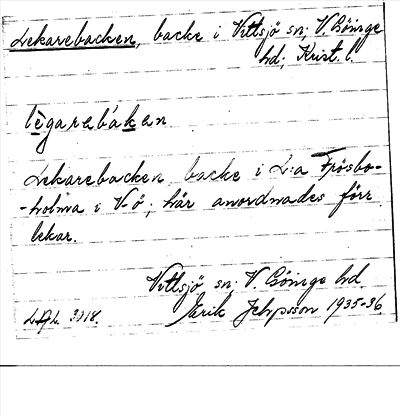 Lekarebacken, backe i Vittsjö sn; V. Göinge
hd; Krist. l.
lẹ̀garebákan
Lekarebacken backe i L:a Frösbo-
-holma i V. ö; här anordnades förr
lekar.
Vittsjö sn; V. Göinge hd.
3118. Erik Jeppsson 1935-36.